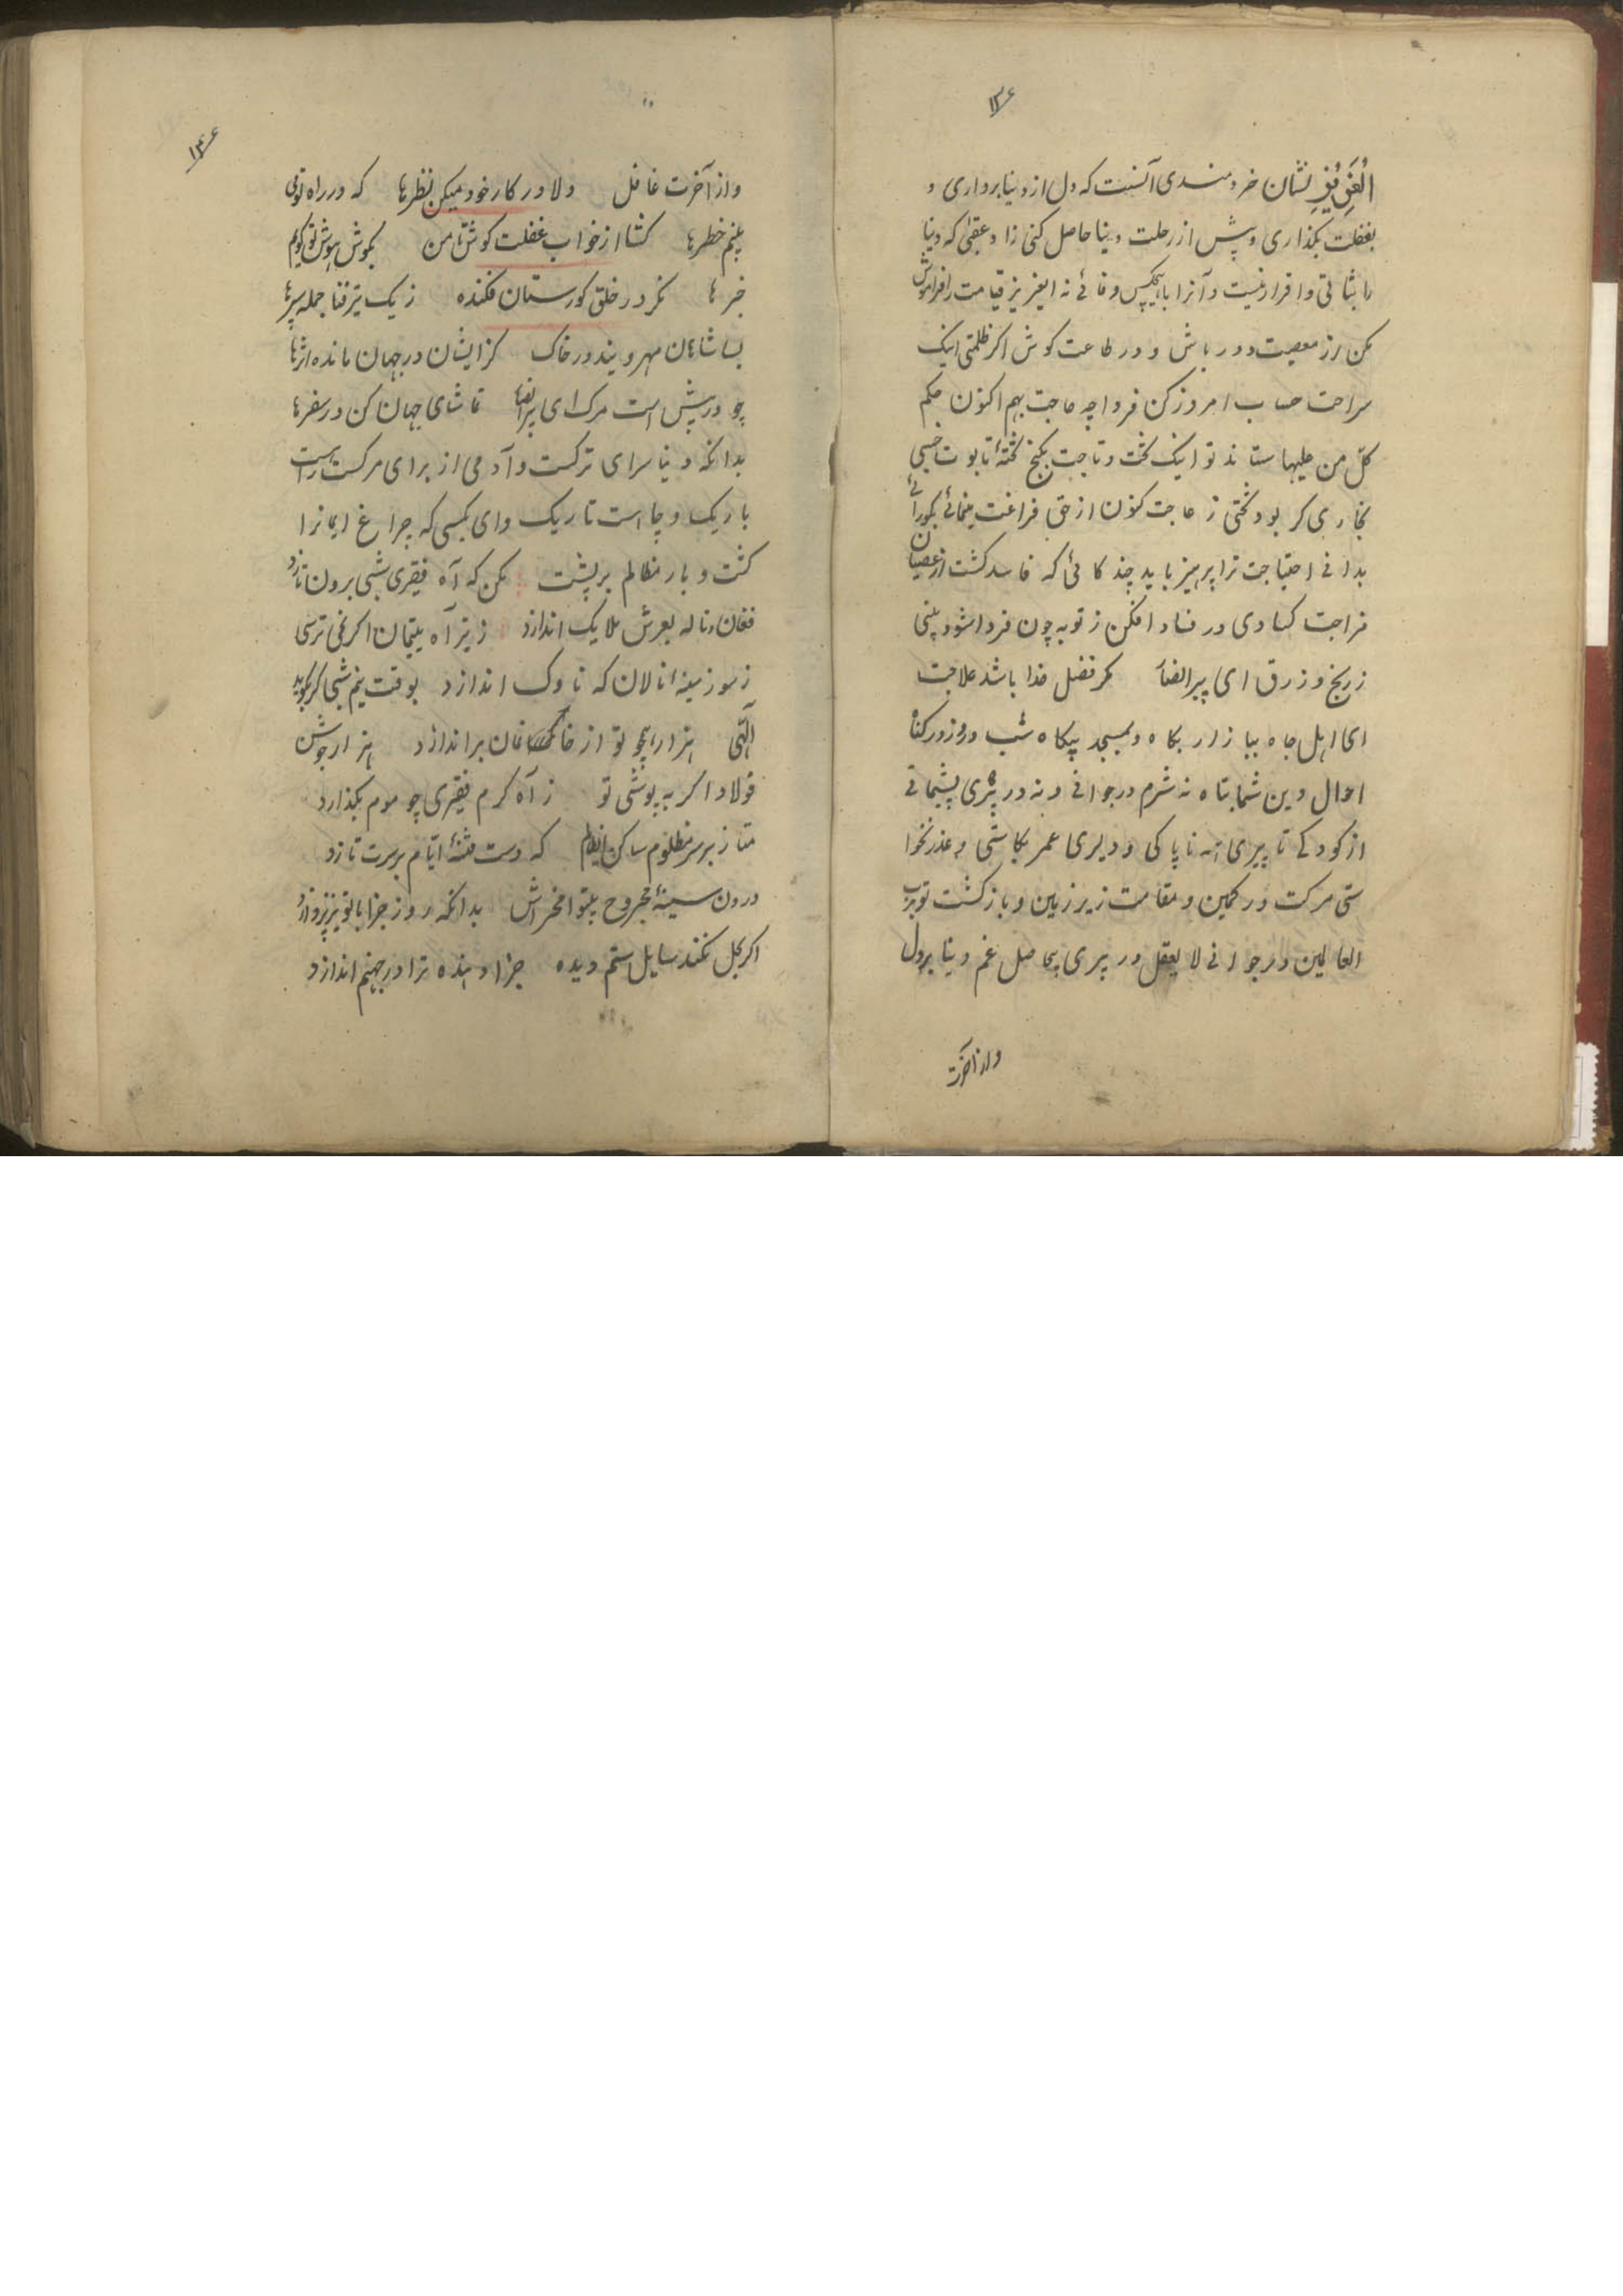 ۱۳۶
الْعَزِیْزِ نشان خردمندی آنست که دل از دنیا برداری و
بغفلت بگذاری و پیش از رحلت دنیا حاصل کنی زاد عقبی که دنیا
را ثباتی و اقرار نیست و آنرا با هیچکس وفائے نه ایعزیز قیامت را فراموش
مکن از معصیت دور باش و در طاعت کوش اگر ظلمتی اینک
سراجت حساب امروز کن فردا چه حاجت بهم اکنون حکم
کل من علیها ستاند تو اینک تخت و تاجت بکنج تختهٔ تابوت خسبی
کر بود تختی ز عاجت کنون از حق فراغت مینمائے بکور آئے
بدانے احتیاجت ترا پرهیز باید چند کاهی که فاسد گشت از عصیان
مزاجت کسادی در فساد افکن ز توبه چون فردا شود بینی
رواجت ز زرق ای پیر انصار مگر فضل خدا باشد علاجت
ای اهل جاه ببازار بکاه و بمسجد بیکاه شب و روز در گناه
احوال دین شما تباه نه شرم در جوانے و نه در پیری پشیمانے
از کودکے تا پیری همه ناپاکی و دلیری عمر بکاستی و عذر نخوا
ستی مرگت در کمین و مقامت زیر زمین و بازگشت تو برب
العالمین در جوانے لا یعقل در پیری بیحاصل غم دنیا بر دل
و از آخرت
۱۳۶
و از آخرت غافل دلا در کار خود میکن نظرها که در راه تو می
بینم خطرها گشا از خواب غفلت گوش تا من بگوش هوش تو گویم
خبرها نگر در خلق گورستان فکنده ز یک تیر فنا جمله سپرها
بسا شاهان مهرویند در خاک کز ایشان در جهان مانده اثرها
چو در پیش است مرگ ای پیر انصار تماشای جهان کن در سفرها
بدانکه دنیا سرای ترکست و آدمی از برای مرگست راهیست
باریک و چاهیست تاریک وای بکسی که چراغ ایمانرا
کشت و بار مظالم بر پشت مکن که آه فقیری شبی برون تازد
فغان و ناله بعرش ملایک اندازد ز تیر آه یتیمان اگر نمی ترسی
ز سوز سینه نالان که ناوک اندازد بوقت نیم شبی گر بگوید
الهی هزار همچو تو از خانمان براندازد هزار جوشن
فولاد اگر بپوشی تو ز آه گرم فقیری چو موم بگذارد
متاز بر سر مظلوم ساکن ایظالم که دست فتنهٔ ایام بر سرت تازد
درون سینهٔ مجروح بینوا مخراش بدانکه روز جزا با تو نیز پردازد
اگر بحل نکند سایل ستم دیده جزا دهنده ترا در جهنم اندازد